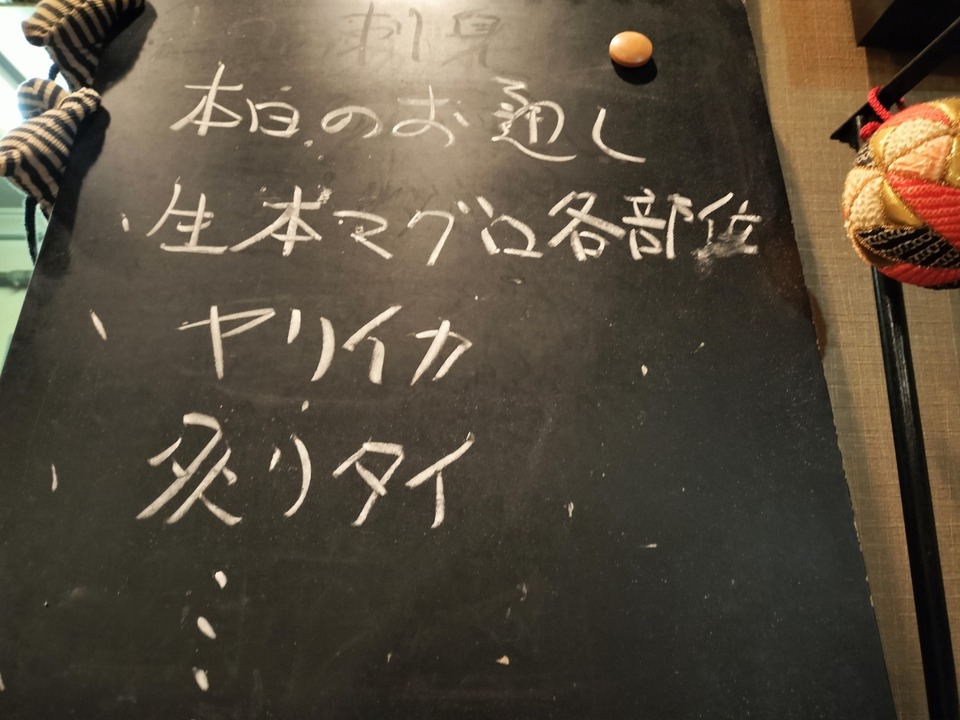 刺身
本日のお通し
・生本マグロ各部位
・ヤリイカ
・炙りタイ
⋮